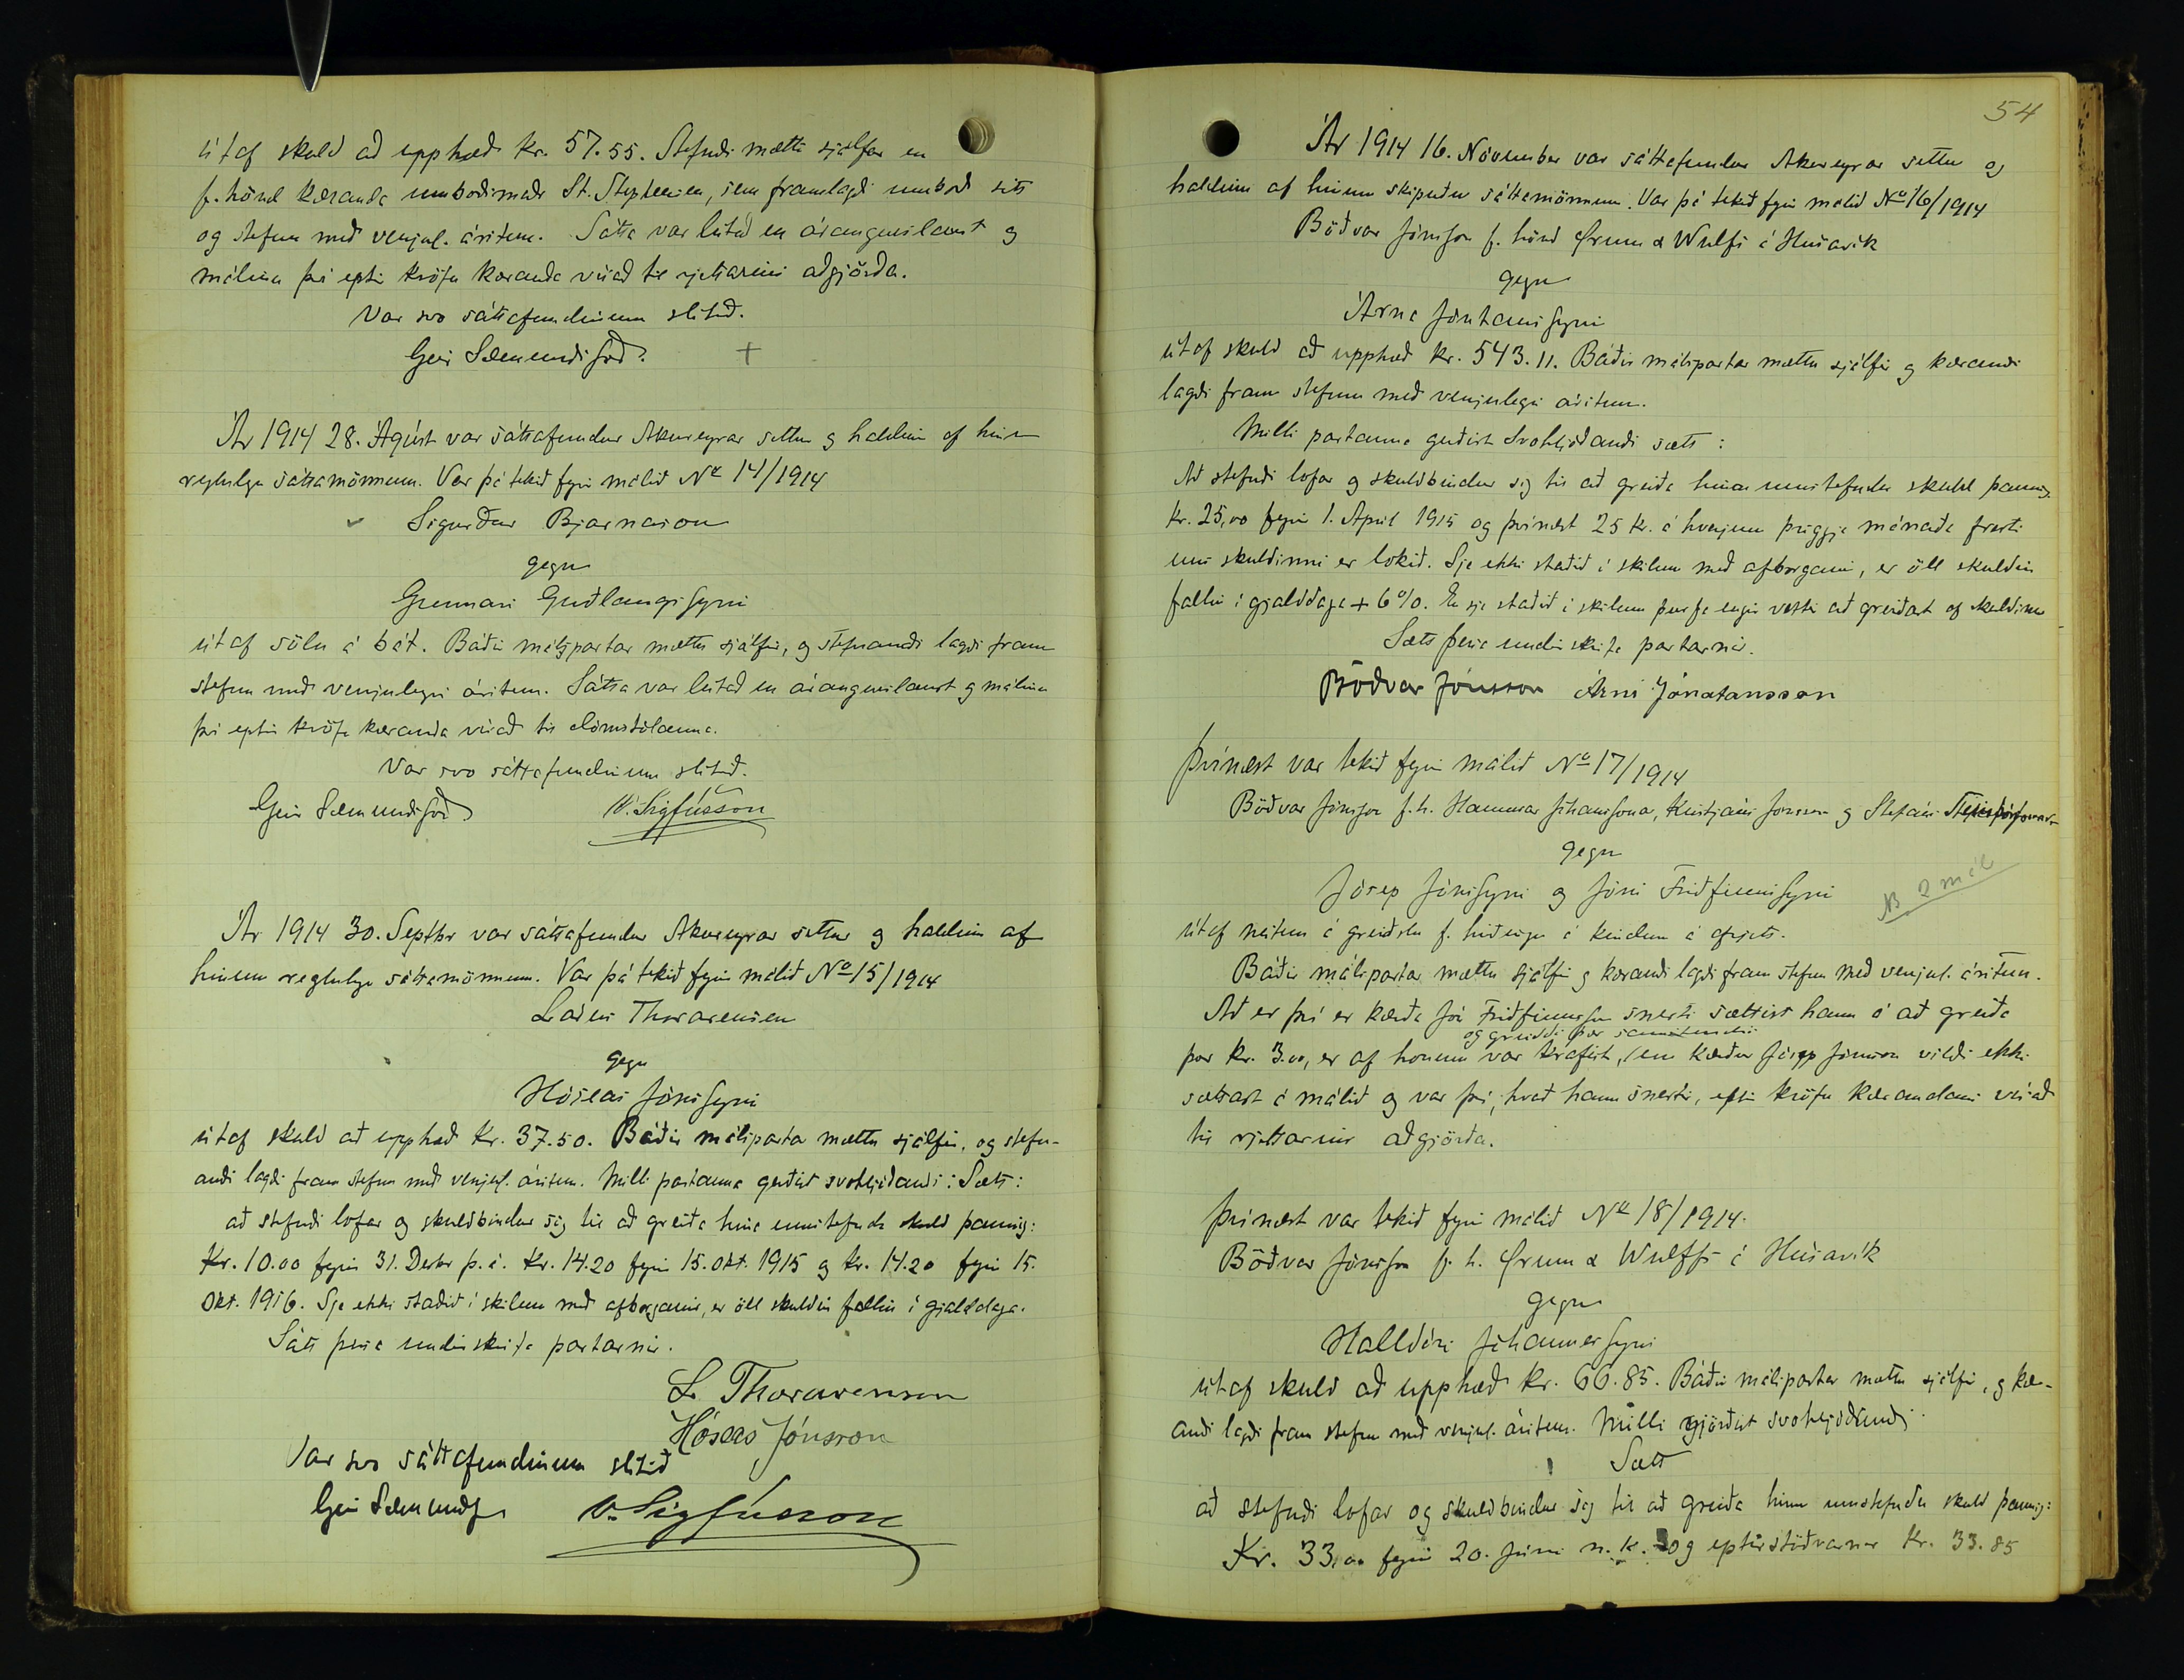 út af skuld að upphæð kr. 57.55. Stefndi mætti sjálfur en
f. hönd kæranda umboðsmaðr St. Stephensen, sem framlagði umboð sitt
og stefnu með venjul. áritun. Sátta var leitað en árangurslaust og
málinu því eptir kröfu kæranda vísað til rjettarins aðgjörða.
Var svo sáttafundinum slitið.
Geir Sæmundsson.
Ár 1914 28. Ágúst var sáttafundur Akureyrar settur og haldinn af hinum
reglulegu sáttamönnum. Var þá tekið fyrir málið No 14/1914
Sigurður Bjarnason
gegn
Gunnari Guðlaugssyni
út af sölu á bát. Báðir málspartar mættu sjálfir, og stefnandi lagði fram
stefnu með venjulegri áritun. Sátta var leitað en árangurslaust og málinu
því eptir kröfu kæranda vísað til dómstólanna.
Var svo sáttafundinum slitið.
Geir Sæmundsson V. Sigfússon
Ár 1914 30. Septbr var sáttafundur Akureyrar settur og haldinn af
hinum reglulegu sáttamönnum. Var þá tekið fyrir málið No 15/1914
Lárus Thorarensen
gegn
Hóseas Jónssyni
út af skuld að upphæð kr. 37.50. Báðir málspartar mættu sjálfir, og stefn-
andi lagði fram stefnu með venjul. áritun. Milli partanna gerðist svohljóðandi: Sætt:
að stefndi lofar og skuldbindur sig til að greiða hina umstefndu skuld þannig:
Kr. 10.00 fyrir 31. Desbr þ.á. Kr. 14.20 fyrir 15. Okt. 1915 og kr. 14.20 fyrir 15.
Okt. 1916. Sje ekki staðið í skilum með afborganir, er öll skuldin fallin í gjalddaga.
Sátt þessa undirskrifa partarnir.
L. Thorarensen
Hóseas Jónsson
Var svo sáttafundinum slitið
Geir Sæmundss V. Sigfússon
54
Ár 1914 16. Nóvember var sáttafundur Akureyrar settur og
haldinn af hinum skipuðu sáttamönnum. Var þá tekið fyrir málið No 16/1914
Böðvar Jónsson f. hönd Ørum & Wulfs á Húsavík
gegn
Árna Jónatanssyni
út af skuld að upphæð kr. 543.11. Báðir málspartar mættu sjálfir og kærandi
lagði fram stefnu með venjulegri áritun.
Milli partanna gerðist svohljóðandi sætt:
Að stefndi lofar og skuldbindur sig til að greiða hina umstefndu skuld þannig.
Kr. 25,00 fyrir 1. Apríl 1915 og þvínæst 25 kr. á hverjum þriggja mánaða fresti
uns skuldinni er lokið. Sje ekki staðið í skilum með afborganir, er öll skuldin
fallin í gjalddaga + 6%. En sje staðið í skilum þurfa engir vextir að greiðast af skuldinni
Sætt þessa undirskrifa partarnir.
Böðvar Jónsson Árni Jónatansson
Þvínæst var tekið fyrir málið No 17/1914
Böðvar Jónsson f.h. Hannesar Jóhannssonar, Kristjáns Jónssonar og Stefáns
gegn
Jósep Jónssyni og Jóni Friðfinnssyni
NB 2 mál
út af neitun á greiðslu f. hirðingu á kindum á afrjett.
Báðir málspartar mættu sjálfir og kærandi lagði fram stefnu með venjul. áritun.
Að er því er kærða Jón Friðfinnsson snerti sættist hann á að greiða
og greiddi þær samstundis
þær kr. 3.00, er af honum var krafist, en kærður Jósep Jónsson vildi ekki
sættast á málið og var því, hvað hann snerti, eptir kröfu kærandans vísað
til rjettarins aðgjörða.
Þvínæst var tekið fyrir málið No 18/1914.
Böðvar Jónsson f. h. Ørum & Wulffs á Húsavík
gegn
Halldóri Jóhannessyni
út af skuld að upphæð kr. 66.85. Báðir málspartar mættu sjálfir, og kær-
andi lagði fram stefnu með venjul. áritun. Milli gjörðist svohljóðandi
Sætt
að stefndi lofar og skuldbindur sig til að greiða hina umstefndu skuld þannig:
Kr. 33,00 fyrir 20. Júní n.k. og eptirstöðvarnar kr. 33.85